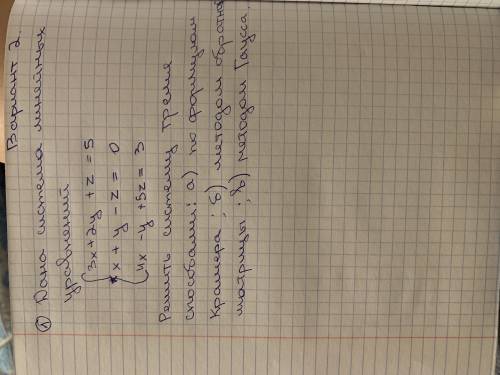 Вариант 2.
① Дана система линейных
уравнений
3x+2y+z=5
x+y-z=0
4x-y+5z=3
Решить систему тремя
способами: а) по формулам
Крамера; б) методом обратной
матрицы; в) методом Гаусса.